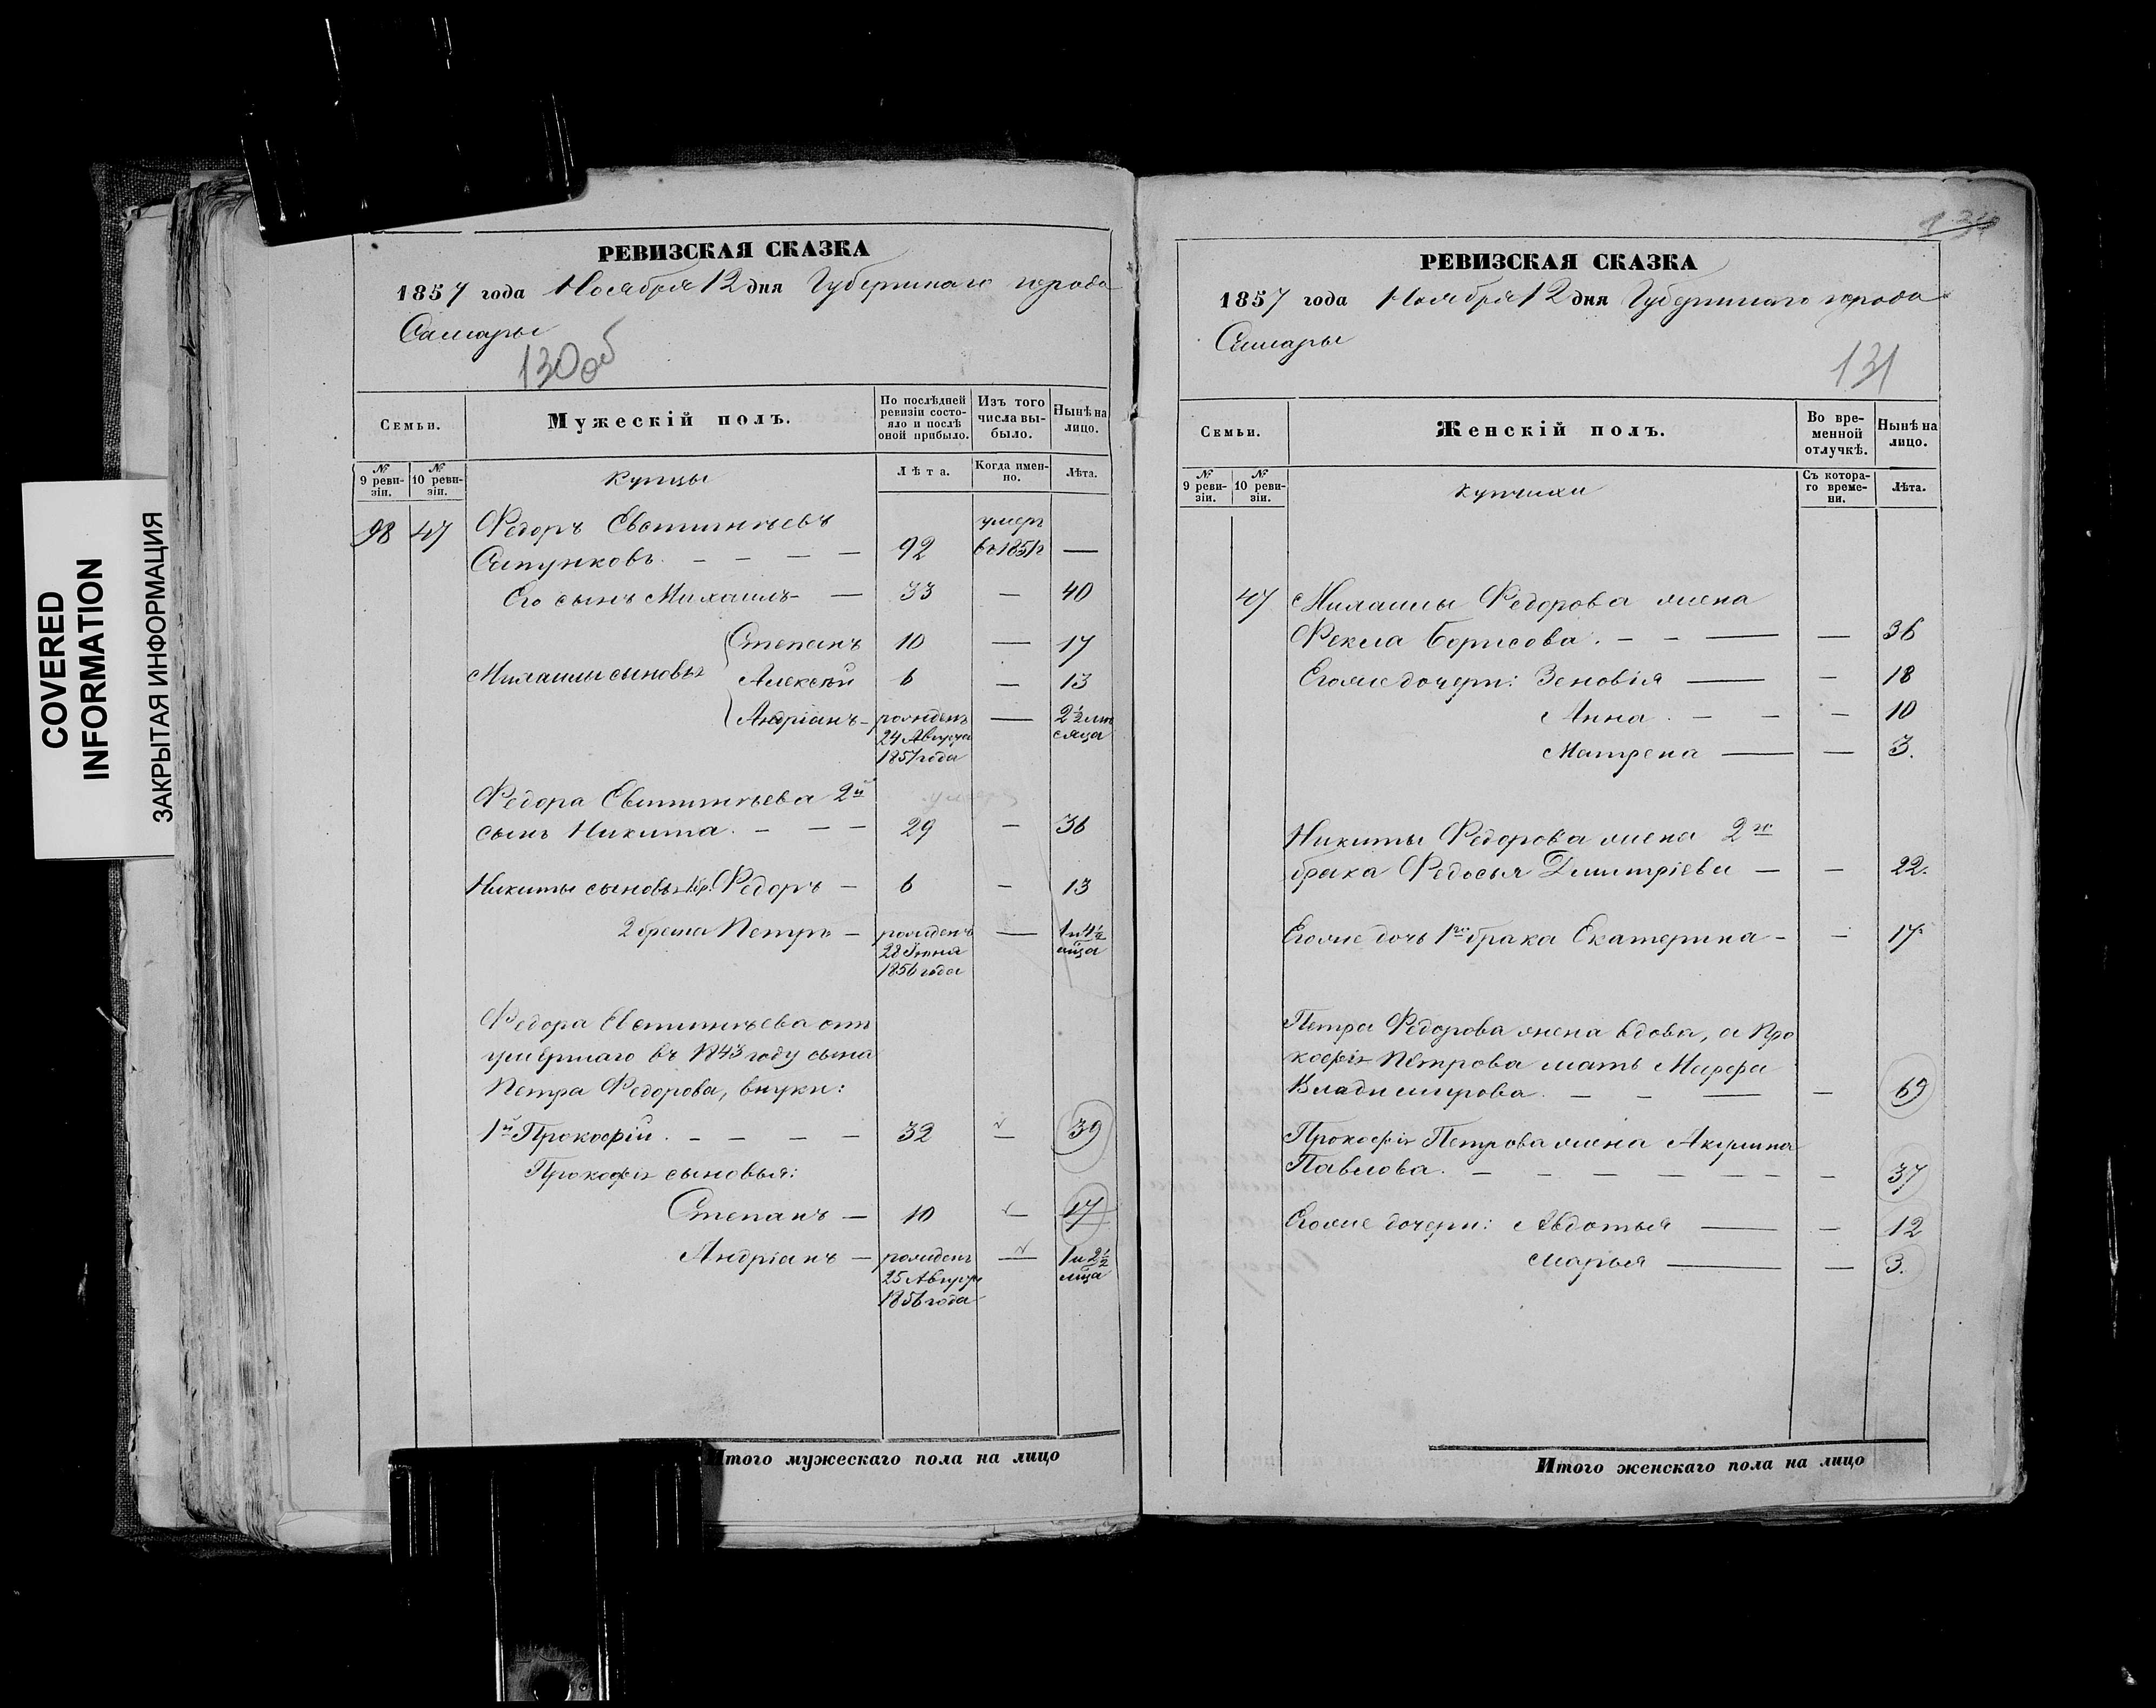 COVERED
INFORMATION
ЗАКРЫТАЯ ИНФОРМАЦИЯ
РЕВИЗСКАЯ СКАЗКА
1857 года Ноября 12 дня Губернскаго города
Самары
130об
Семьи.
Мужескій полъ.
По послѣдней ревизіи состо-
яло и послѣ оной прибыло.
Изъ того числа вы-
было.
Нынѣ на лицо.
№ 9 реви-
зіи.
№ 10 реви-
зіи.
Купцы
Лѣта.
Когда имен-
но.
Лѣта.
98 47 Федоръ Евстигнѣевъ умеръ
Сапунковъ. — — — — 92 въ 1851г —
Его сынъ Михаилъ — — 33 — 40
Степанъ 10 — 17
Михаилы сыновья Алексѣй 6 — 13
Андріанъ — рожденъ — 2½ мѣ
24 Августа сяца
1857 года
Федора Евстигнѣева 2й
сынъ Никита. — — — 29 — 36
Никиты сыновья 1бр. Федоръ — 6 — 13
2 брака Петръ — рожденъ — 1 и 4½
28 Іюня мца
1856 года
Федора Евстигнѣева отъ
умершаго въ 1843 году сына
Петра Федорова, внуки:
1й Прокофій. — — — — 32 — 39
Прокофія сыновья:
Степанъ — 10 — 17
Андріанъ — рожденъ — 1 и 2½
25 Августа мца
1856 года
Итого мужескаго пола на лицо
РЕВИЗСКАЯ СКАЗКА
1857 года Ноября 12 дня Губернскаго города
Самары
131
Семьи.
Женскій полъ.
Во вре-
менной отлучкѣ.
Нынѣ на лицо.
№ 9 реви-
зіи.
№ 10 реви-
зіи.
Купчихи
Съ котора-
го време-
ни.
Лѣта.
47 Михаилы Федорова жена
Фекла Борисова. — — — — 36
Егоже дочери: Зеновія — — 18
Анна. — — — 10
Матрена — — 3.
Никиты Федорова жена 2го
брака Федосья Димитріева — — 22.
Егоже дочь 1го брака Екатерина — — 17.
Петра Федорова жена вдова, а Про
кофія Петрова мать Марфа
Владимирова. — — — — 69
Прокофія Петрова жена Акулина
Павлова. — — — — — — — 37
Егоже дочери: Авдотья — — 12
Марья — — 3.
Итого женскаго пола на лицо